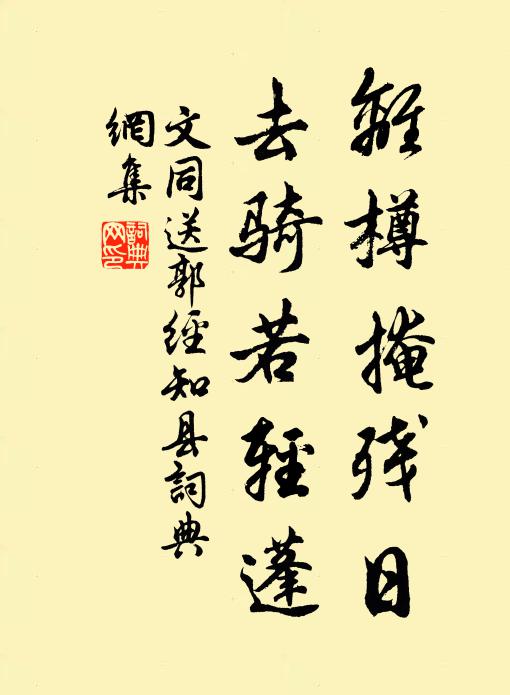 離樽掩残日
去骑若輕蓬
文同送郭經知县詞典
網集
詞典网印